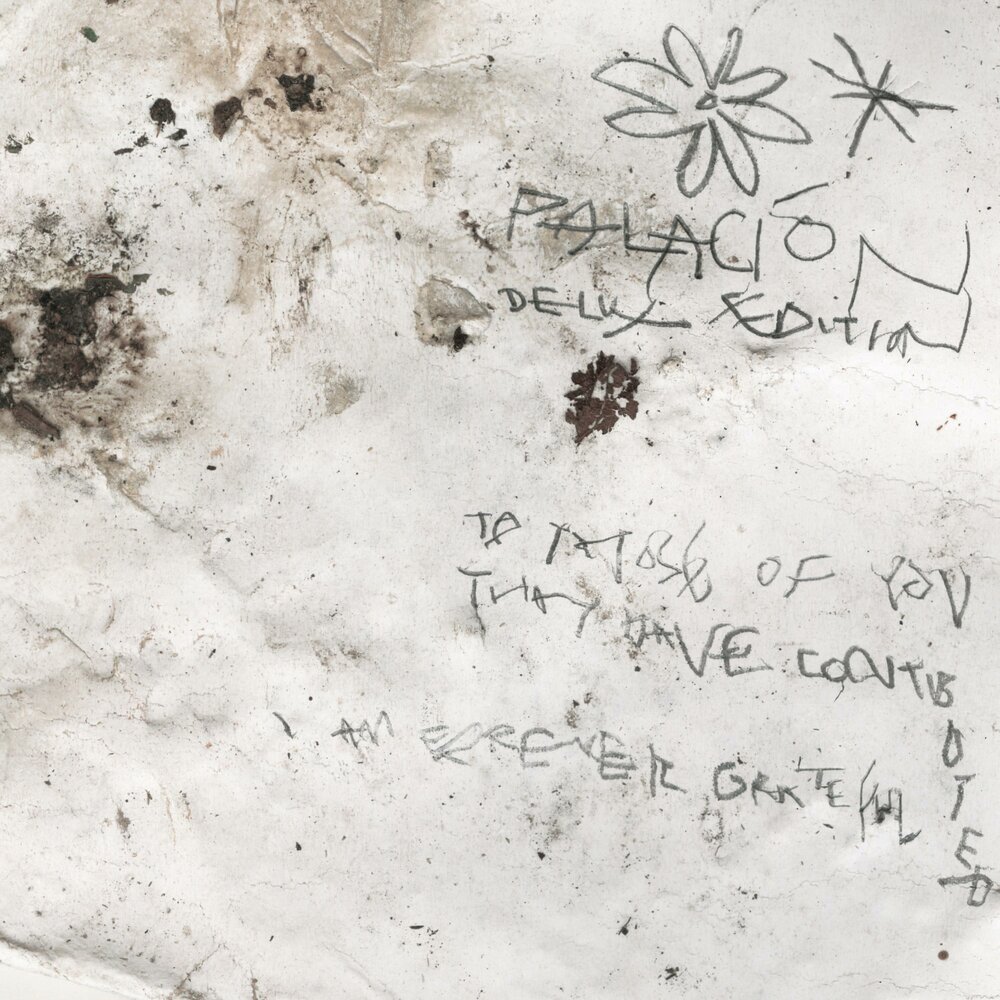 PALACIÓN
DELUX EDITION
TO THOSE OF YOU
THAT HAVE CONTIBUTED
I AM FOREVER GRATEFUL